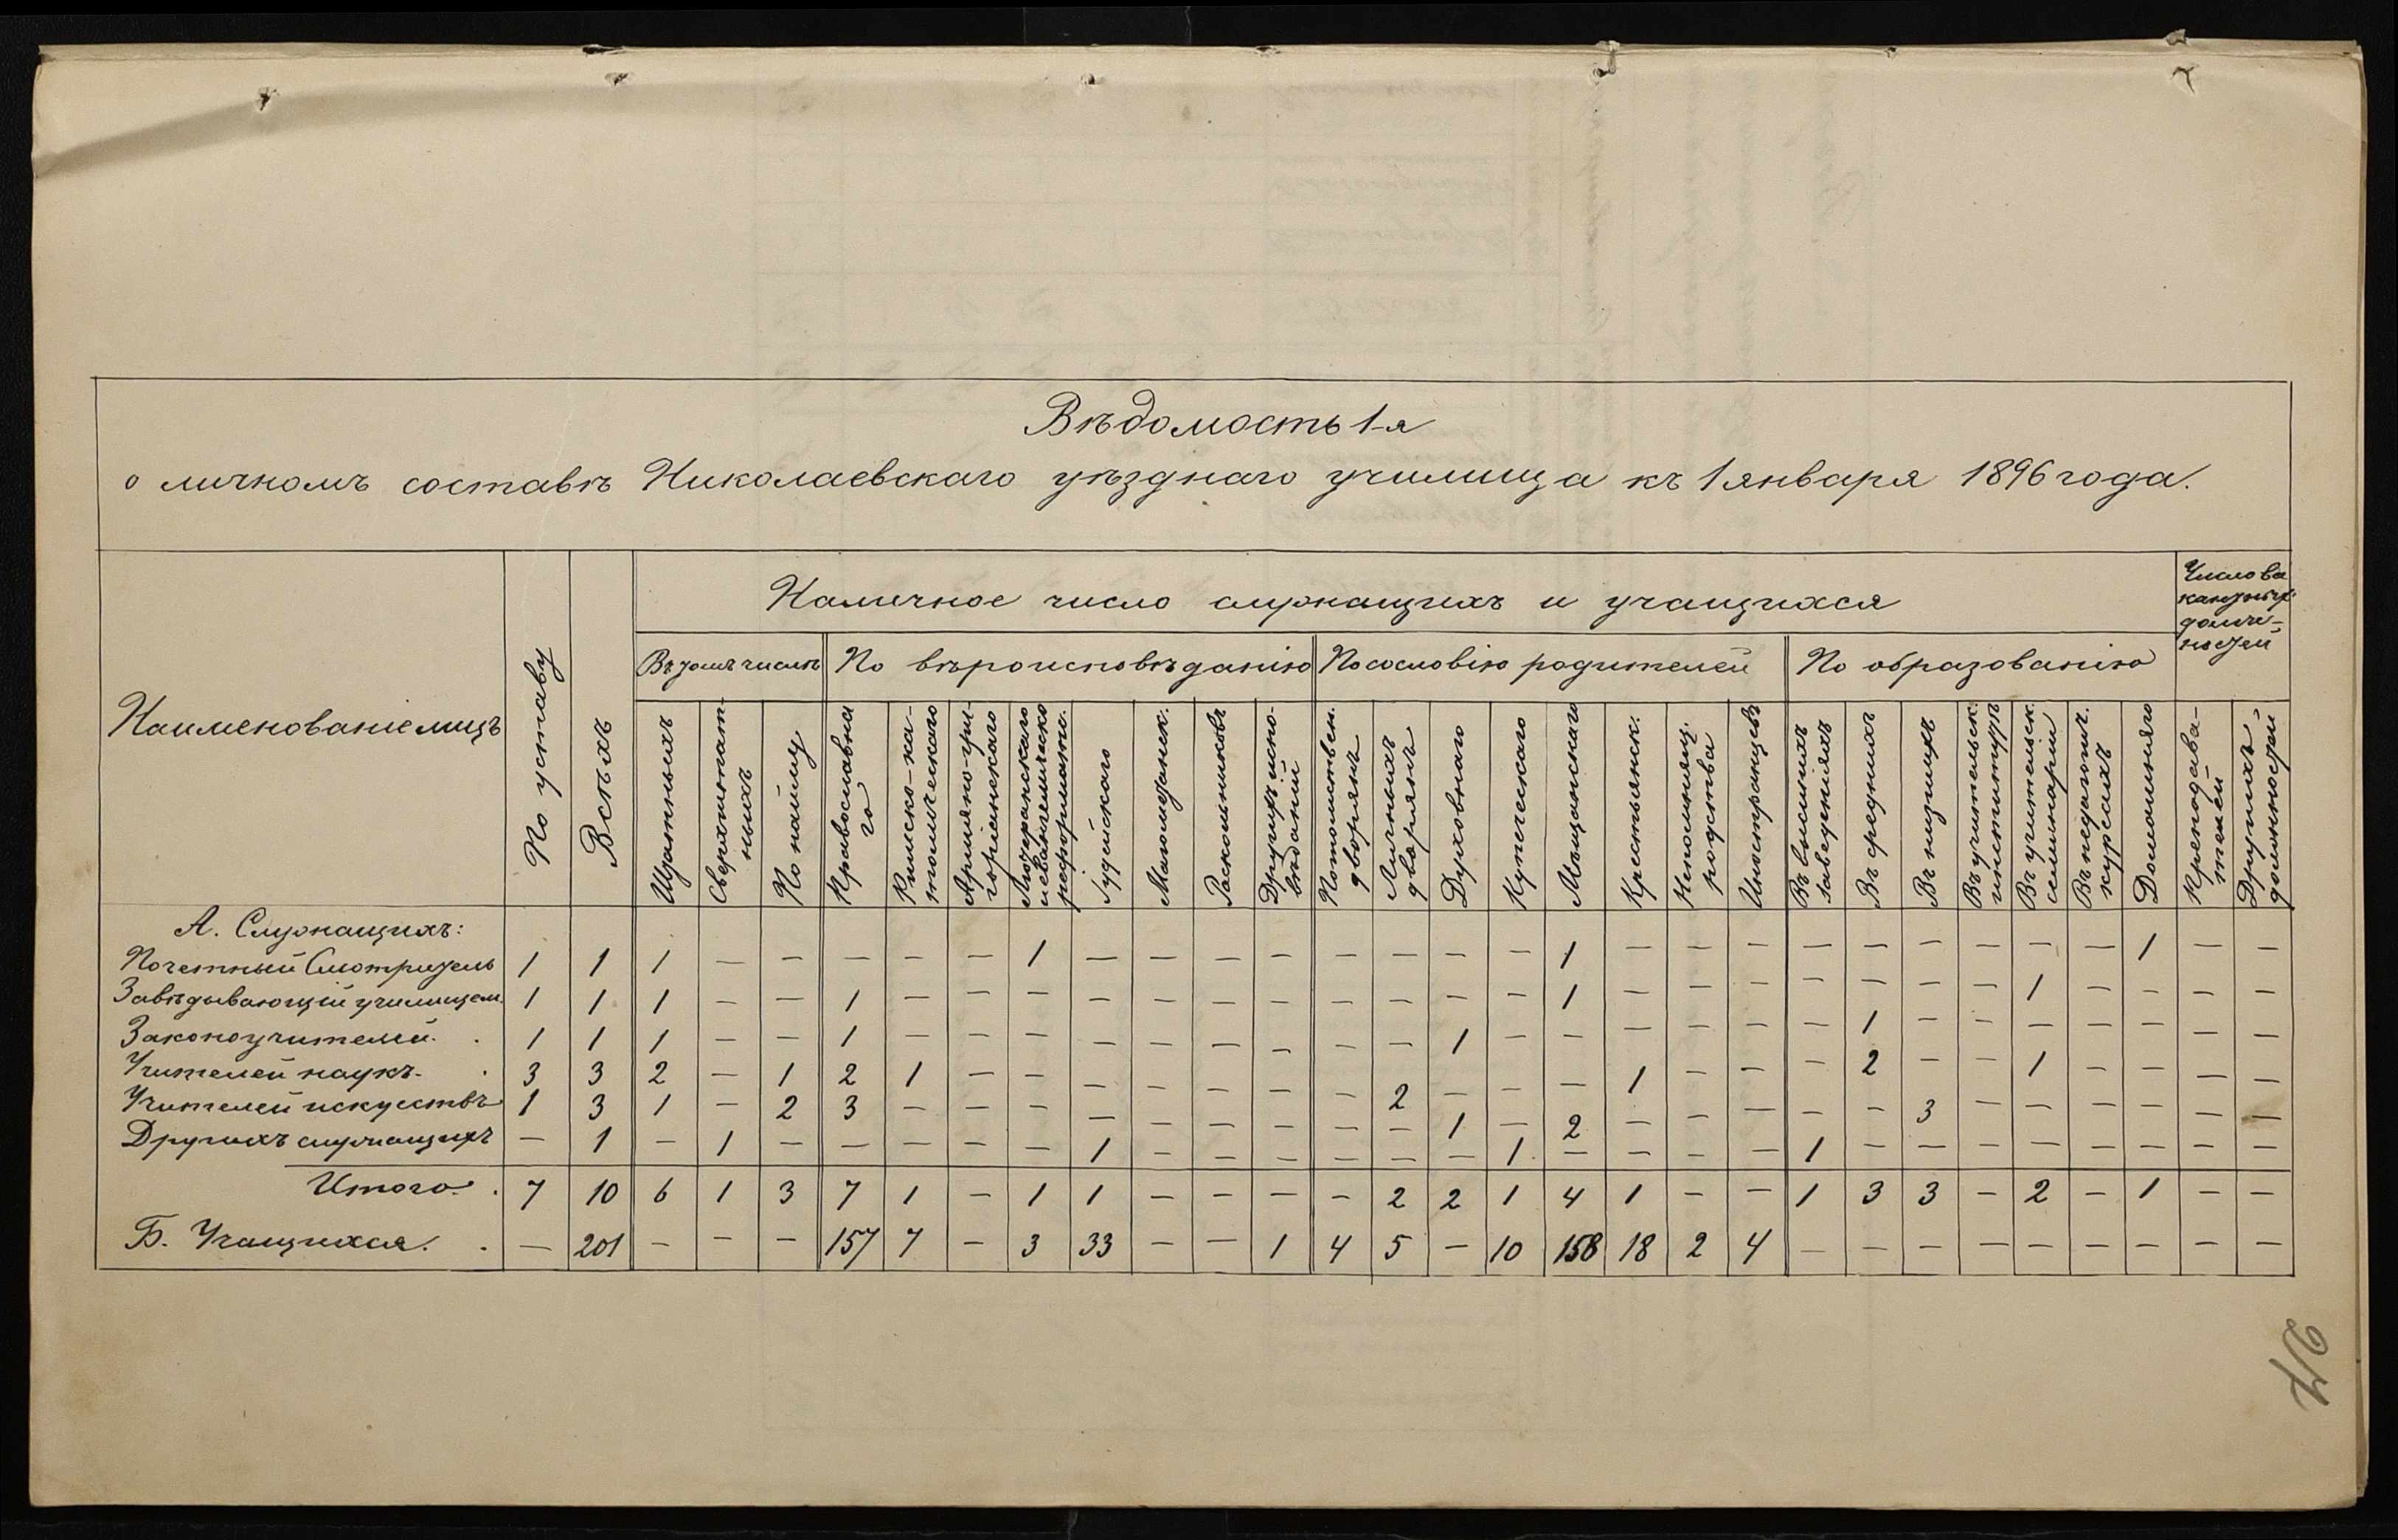 Вѣдомость 1-я
о личномъ составѣ Николаевскаго уѣзднаго училища къ 1 января 1896 года.
Наименованіе лицъ
По уставу
Всѣхъ
Наличное число служащихъ и учащихся
Число ва
кантных
долж-
ностей
Въ томъ числѣ
По вѣроисповѣданію
По сословію родителей
По образованію
Штатныхъ
Сверхштат-
ныхъ
По найму
Православна
го
Римско-ка-
толическаго
Армяно-гри-
горіанскаго
Лютеранскаго
и евангелическо
реформатс.
Іудейскаго
Магометанск.
Раскольниковъ
Другихъ испо-
вѣданій
Потомствен.
дворянъ
Личныхъ
дворянъ
Духовнаго
Купеческаго
Мѣщанскаго
Крестьянск.
Непомнящ.
родства
Иностранцевъ
Въ высшихъ
заведеніяхъ
Въ среднихъ
Въ низшихъ
Въ учительск.
институтѣ
Въ учительск.
семинаріи
Въ педагогич.
курсахъ
Домашняго
Преподава-
телей
Другихъ
должностей
А. Служащихъ:
Почетный Смотритель 1 1 1 — — — — — 1 — — — — — — — — 1 — — — — — — — — — 1 — —
Завѣдывающій училищем. 1 1 1 — — 1 — — — — — — — — — — — 1 — — — — — — — 1 — — — —
Законоучителей. . 1 1 1 — — 1 — — — — — — — — — 1 — — — — — — 1 — — — — — — —
Учителей наукъ. . 3 3 2 — 1 2 1 — — — — — — — 2 — — — 1 — — — 2 — — 1 — — — —
Учителей искуствъ 1 3 1 — 2 3 — — — — — — — — — 1 — 2 — — — — — 3 — — — — — —
Другихъ служащихъ — 1 — 1 — — — — — 1 — — — — — — 1 — — — — 1 — — — — — — — —
Итого. . 7 10 6 1 3 7 1 — 1 1 — — — — 2 2 1 4 1 — — 1 3 3 — 2 — 1 — —
Б. Учащихся. . — 201 — — — 157 7 — 3 33 — — 1 4 5 — 10 158 18 2 4 — — — — — — — — —